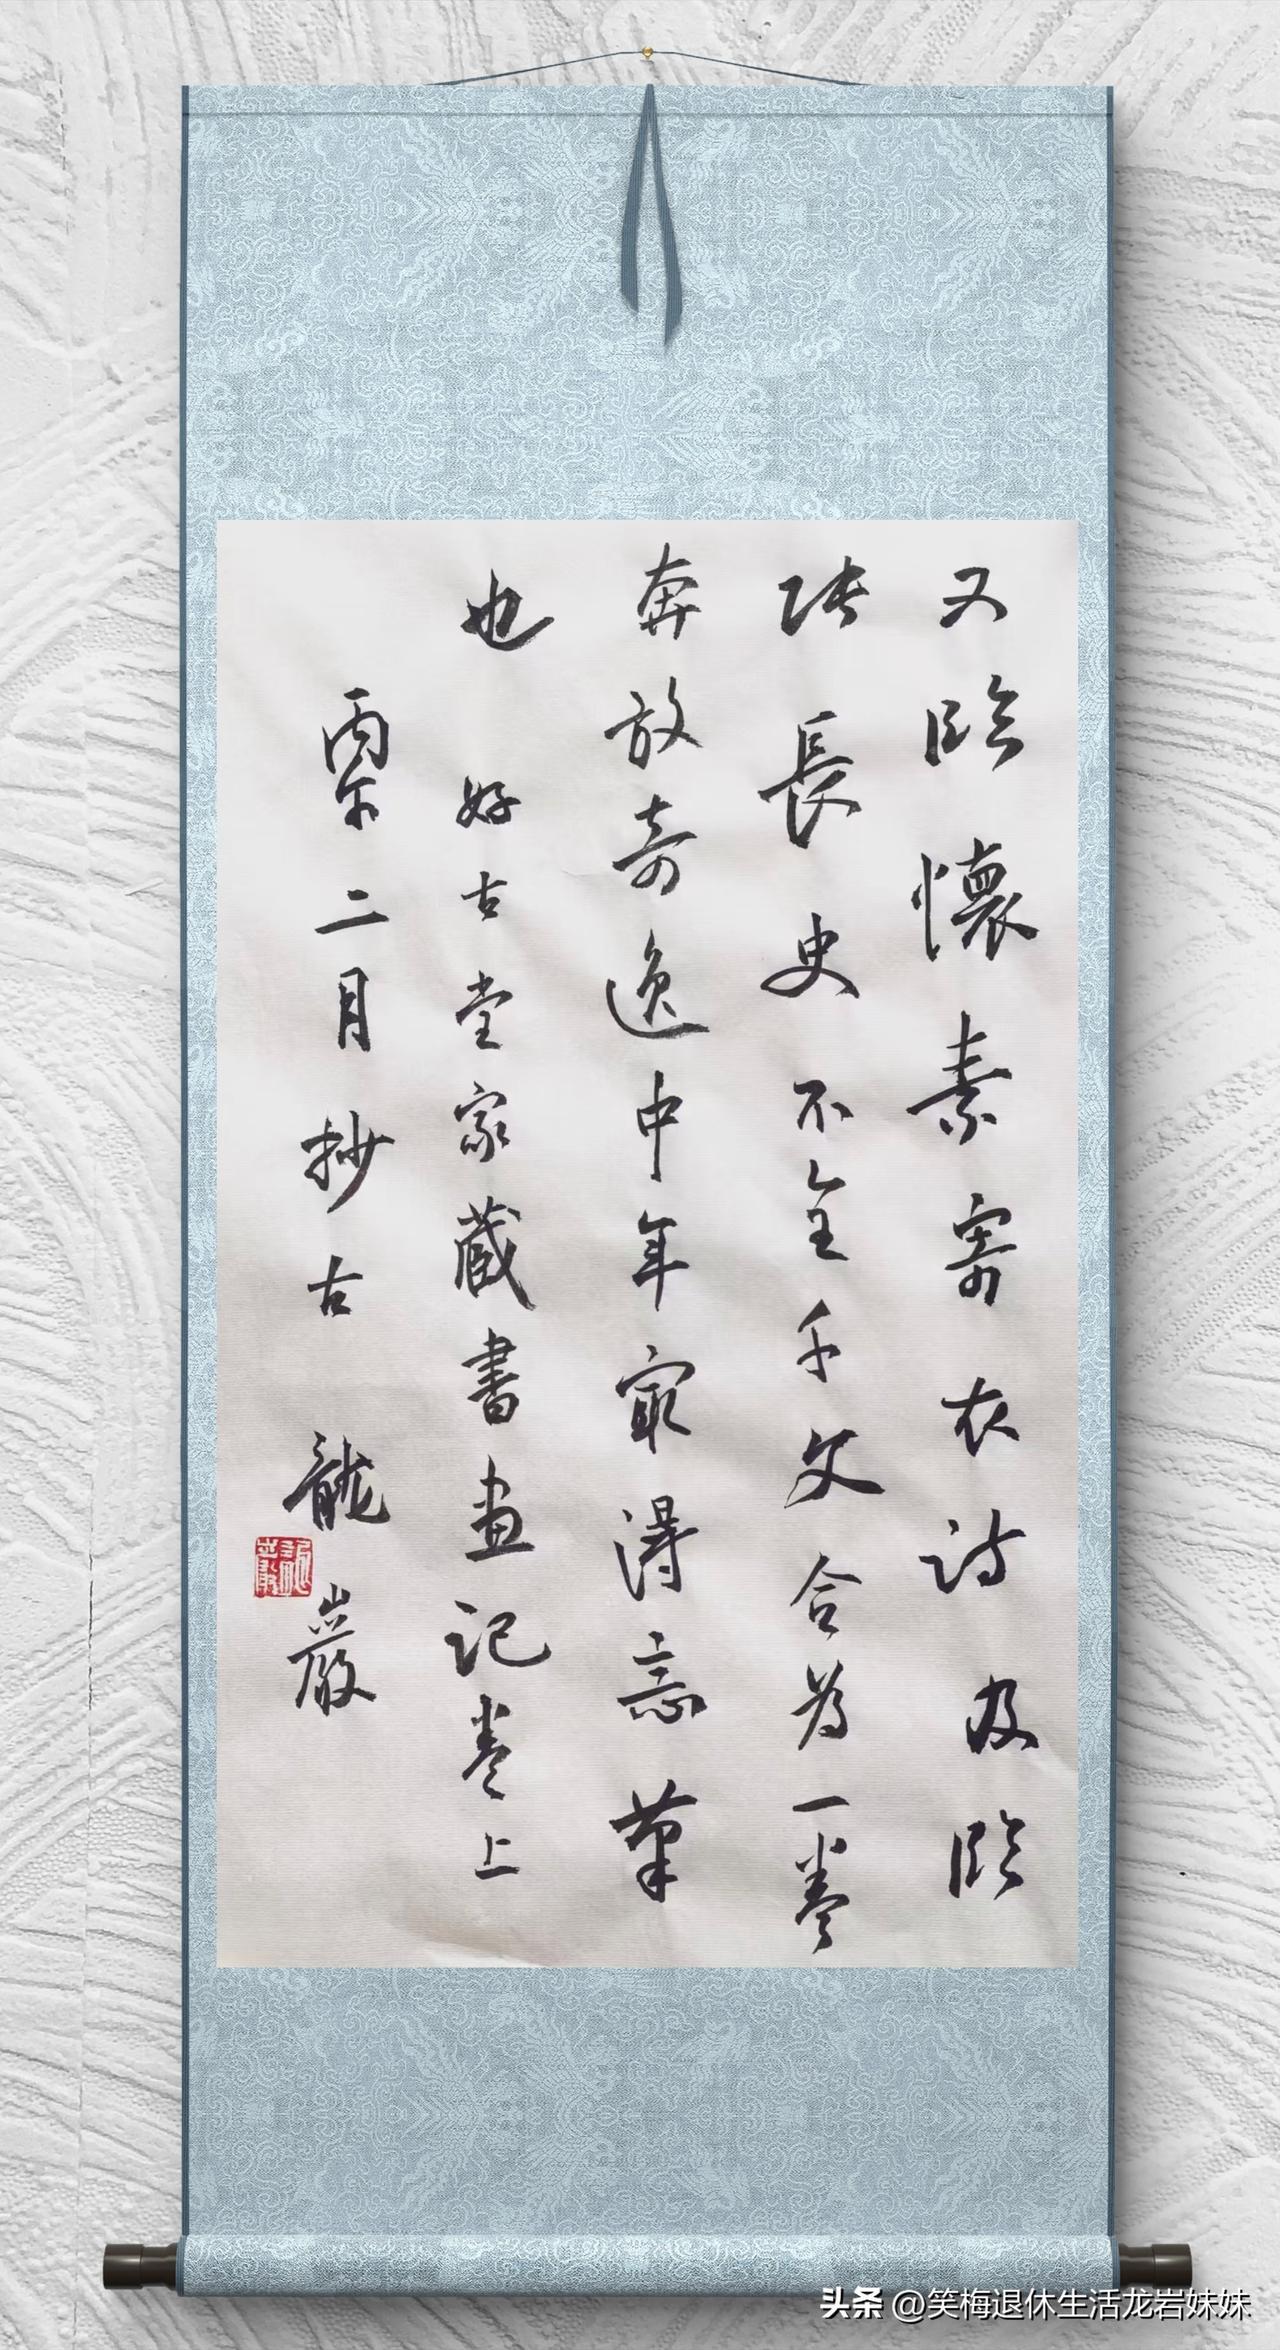 又臨懷素寄衣詩及臨
張長史不全千文合為一卷
奔放奇逸中年最得意筆
也 好古堂家藏書畫記卷上
丙午二月抄古 龍巖
头条 @笑梅退休生活龙岩妹妹